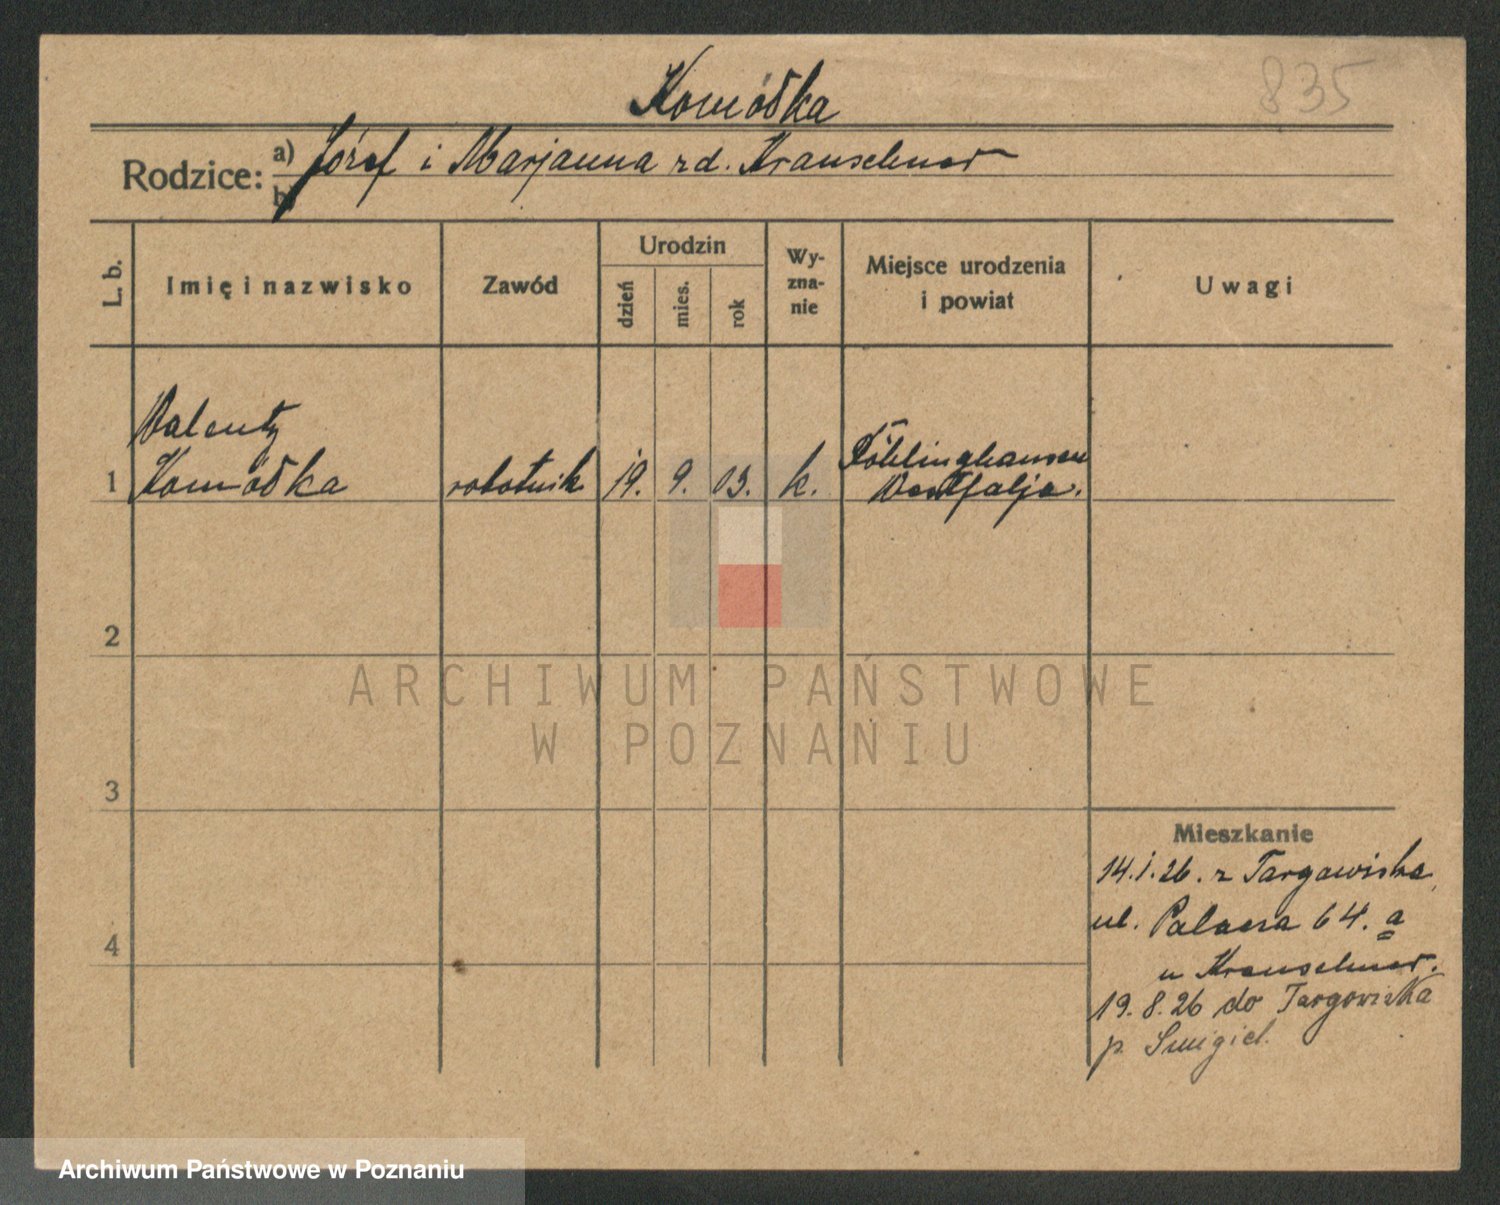 835
Komódka
Rodzice: a) Józef i Marjanna zd. Kranschner
b)
L. b. Imię i nazwisko Zawód Urodzin dzień mies. rok Wy-zna-nie Miejsce urodzenia i powiat Uwagi
Walenty
1 Komódka robotnik 19. 9. 03. k. Röhlinghausen
Westfalja.
2
3
4
Mieszkanie
14.1.26. z Targowiska
ul. Palacza 64. a
u Kranschner.
19.8.26 do Targowiska
p. Śmigiel.
ARCHIWUM PAŃSTWOWE
W POZNANIU
Archiwum Państwowe w Poznaniu